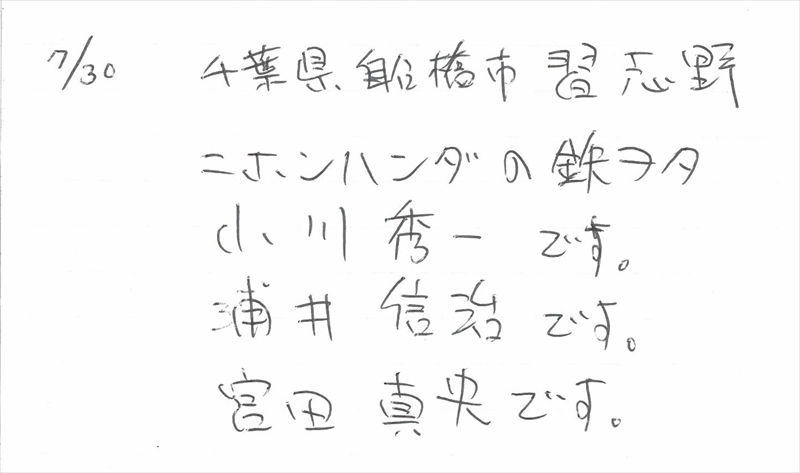 7/30 千葉県船橋市習志野
ニホンハンダの鉄ヲタ
小川秀一です。
浦井信治です。
宮田真央です。